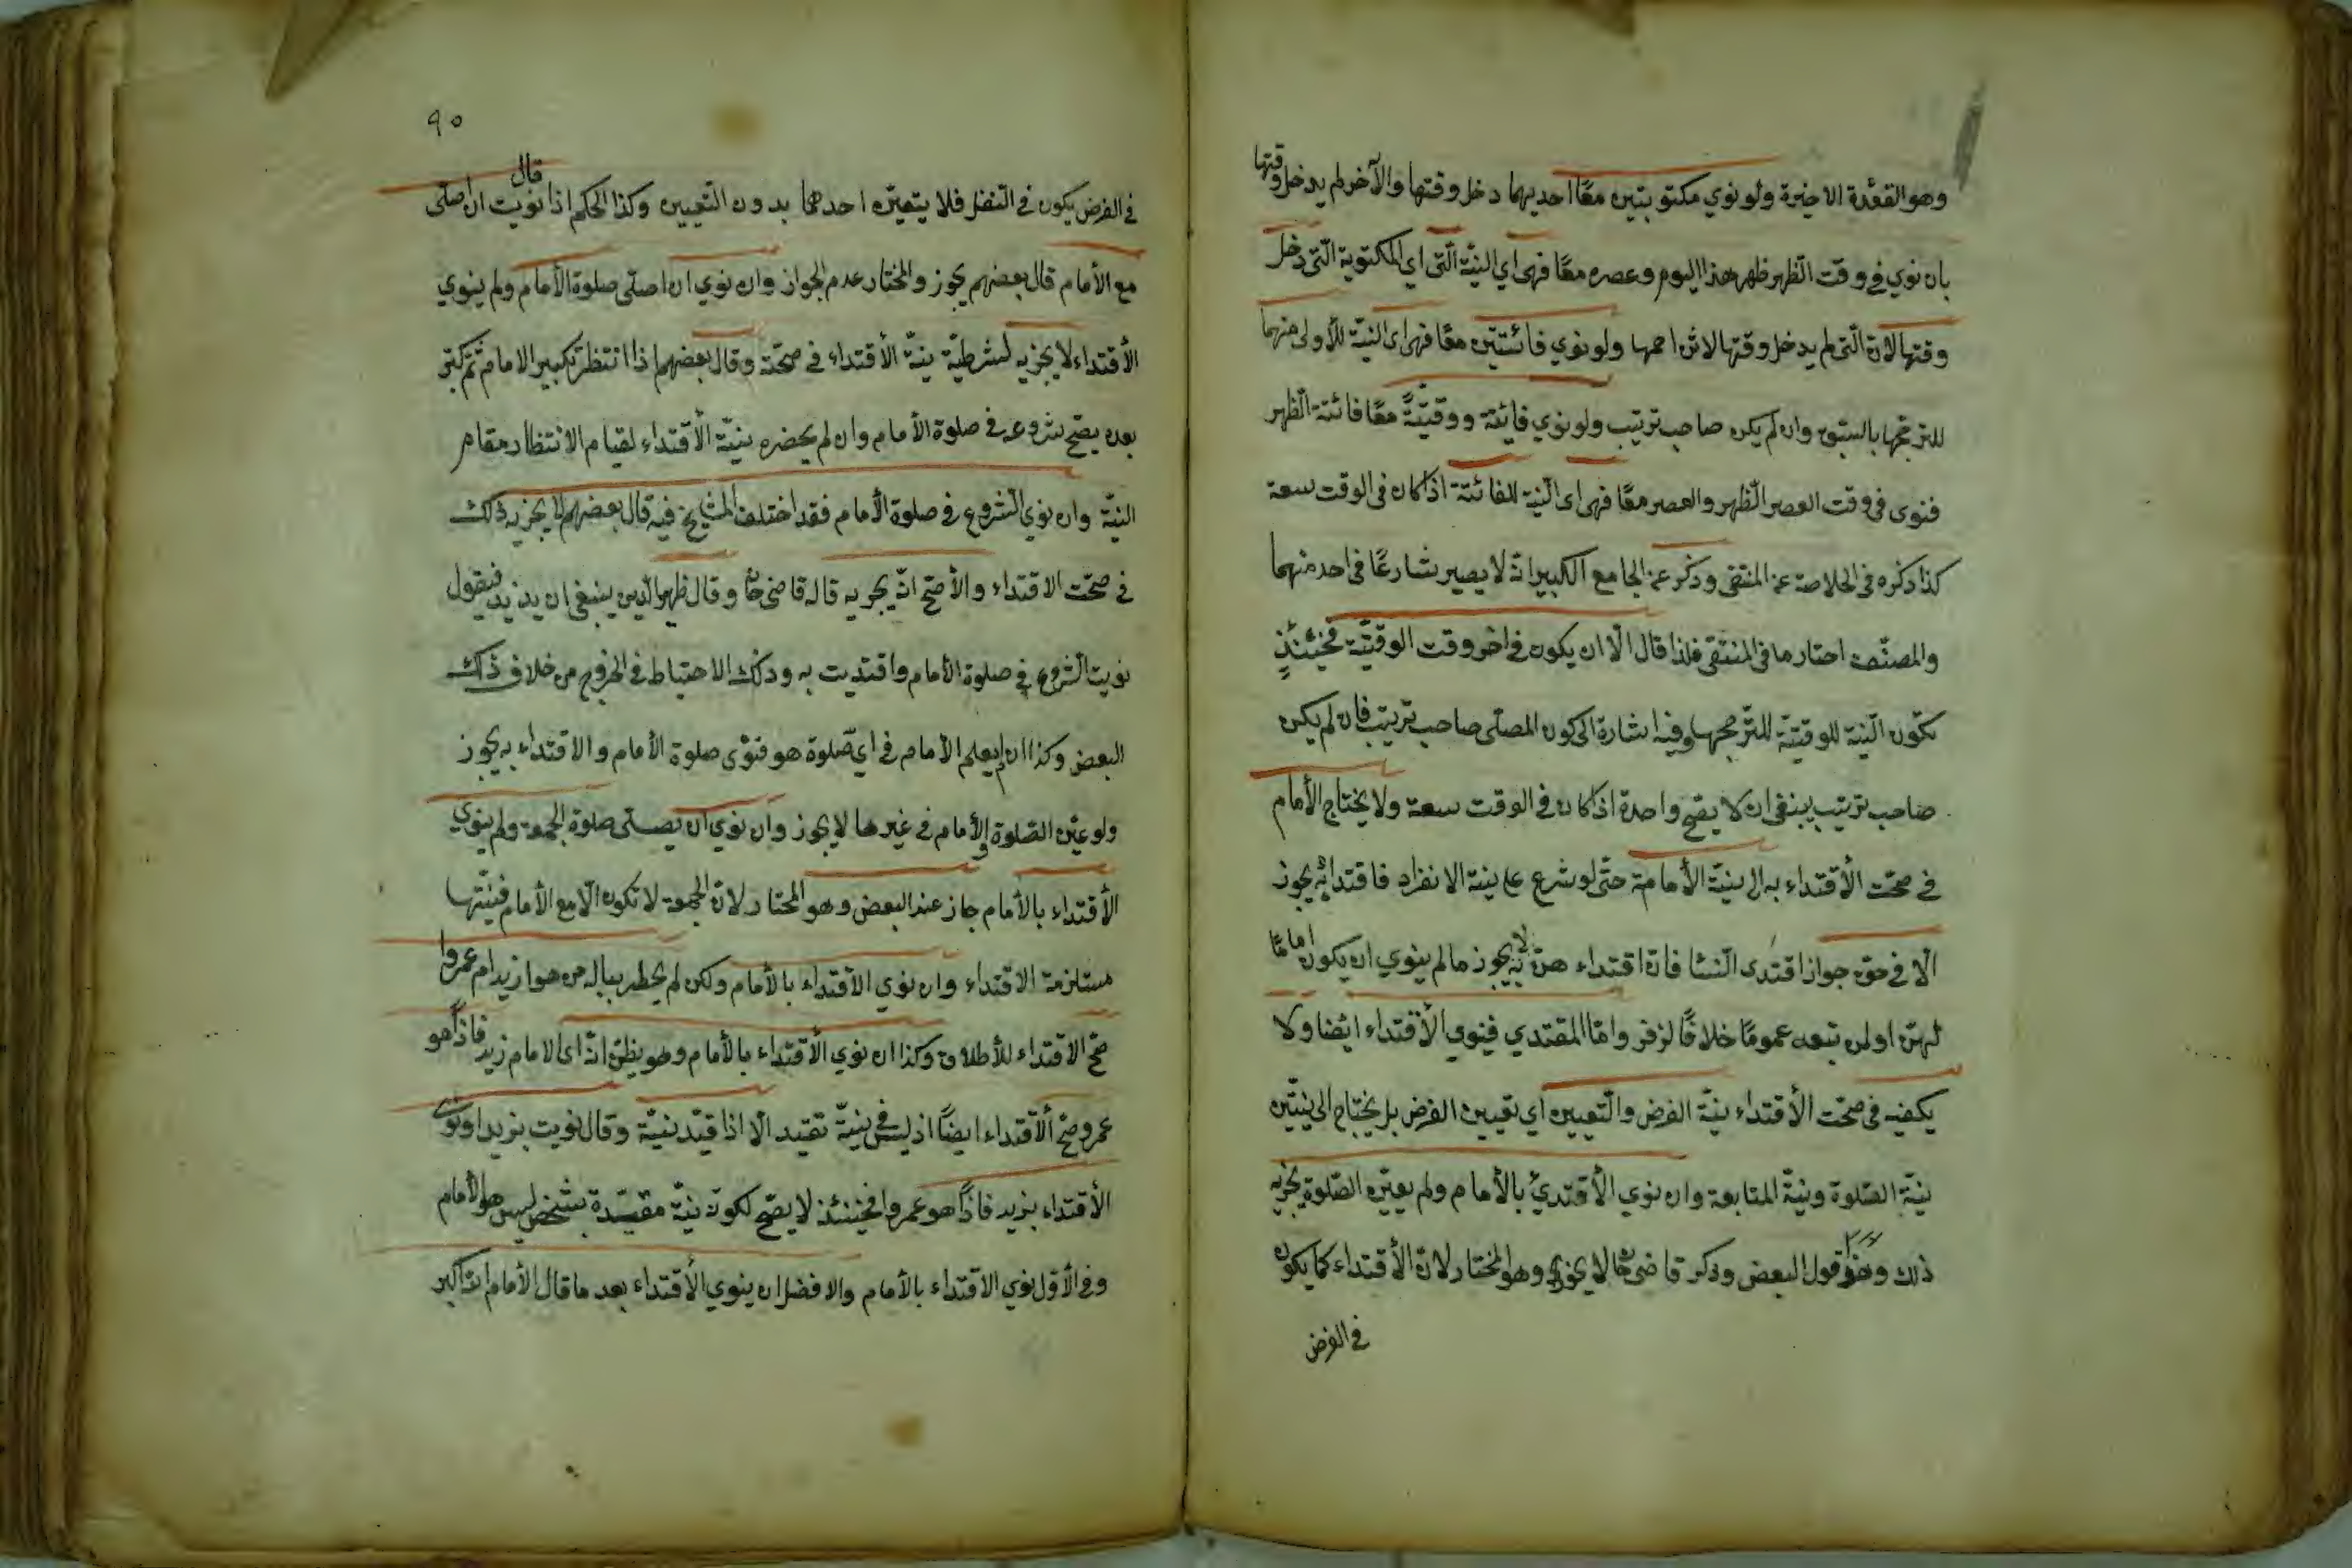 وهو القعدة الاخيرة ولو نوي مكتوبتين معًا احديهما دخل وقتها والآخر لم يدخل وقتها
بان نوي في وقت الظهر ظهر هذا اليوم وعصره معًا فهى اي النيّة الّتى اي المكتوبة الّتى دخل
وقتها لانّ الّتى لم يدخل وقتها لا تزاحمها ولو نوي فائتتين معًا فهى اى النيّة للأولى منهما
للترجّحها بالسبق وان لم يكن صاحب ترتيب ولو نوي فائتة ووقتيّةً معًا فائتة الظهر
فنوى فى وقت العصر الظهر والعصر معًا فهى اى النّية للفائتة اذا كان فى الوقت سعة
كذا ذكره فى الخلاصة عن المنتقى وذكر عن الجامع الكبير انّه لا يصير شارعًا فى احد منهما
والمصنّف اختار ما فى المنتقى فلذا قال الّا ان يكون فى اخر وقت الوقتيّة فحينئذٍ
تكّون النّية للوقتيّة للترّجحها وفيه اشارة الى كون المصلّى صاحب ترتيب فان لم يكن
صاحب ترتيب ينبغى ان لا يصّح واحدة اذا كان فى الوقت سعة ولا يحتاج الأمام
فى صحّت الأقتداء به الى نيّة الأمامة حتّى لو شرع على نية الانفراد فاقتدائه يجوز
الّا فى حق جواز اقتدى النّسا فانّ اقتداء هنّ به لا يجوز ما لم ينوي ان يكون امامًا
لهنّ او لمن تبعه عمومًا خلافًا لزفر وامّا المقتدي فينوي الأقتداء ايضا ولا
يكفيه فى صحّت الأقتداء نيّة الفرض والتّعيين اي تعيين الفرض بل يحتاج الى نيّتين
نيّة الصّلوة ونيّة المتابعة وان نوي الأقتديّ بالأمام ولم يعيّن الصّلوة يجزيه
ذلك وهو قول البعض وذكر قاضى خان لا يجوز وهو المختار لانّ الأقتداء كما يكون
فى الفرض
٩٠
فى الفرض يكون فى النّفل فلا يتعيّن احدهما بدون التّعيين وكذا الحكم اذا قال نويت ان اصلّى
مع الأمام قال بعضهم يجوز والمختار عدم الجواز وان نوي ان اصلّى صلوة الأمام ولم ينوي
الأقتداء لا يجزيه لشرطيّة نيّة الأقتداء فى صحّة وقال بعضهم اذا انتظر تكبير الامام ثمّ كبّر
بعده يصحّ شروعه فى صلوة الأمام وان لم يحضره نيّة الأقتداء لقيام الانتظار مقام
النيّة وان نوي الشروع فى صلوة الأمام فقد اختلف المشايخ فيه قال بعضهم لا يجزيه ذلك
فى صحّت الاقتداء والأصّح انّه يجزيه قاله قاضى خان وقال ظهير الّدين ينبغى ان يزيد فيقول
نويت الشّروع فى صلوة الأمام واقتديت به وذلك الاحتياط فى الخروج من خلاف ذلك
البعض وكذا ان لم يعلم الأمام فى ايّ صلوة هو فنوى صلوة الأمام والاقتداء به يجوز
ولو عيّن الصّلوة والأمام فى غيرها لا يجوز وان نوي ان يصلّى صلوة الجمعة ولم ينوي
الأقتداء بالأمام جاز عند البعض وهو المختار لانّ الجمعة لا تكون الّا مع الأمام فنيّتها
مستلزمة الاقتداء وان نوي الاقتداء بالأمام ولكن لم يخطر بباله من هو ازيد ام عمروا
صّح الاقتداء للأطلاق وكذا ان نوي الأقتداء بالأمام وهو يظنّ انّه اى الامام زيد فاذًا هو
عمرو صّح ألاقتداء ايضًا اذ ليس فى نيّة تقيد الّا اذا قيّد نيّة وقال نويت بزيد او نوى
الأقتداء بزيد فاذًا هو عمروا فحينئذ لا يصّح لكون نيّة مقيّدة بشخص ليس هو الأمام
وفى الأوّل نوي الاقتداء بالأمام والافضل ان ينوي الأقتداء بعد ما قال الأمام الله اكبر